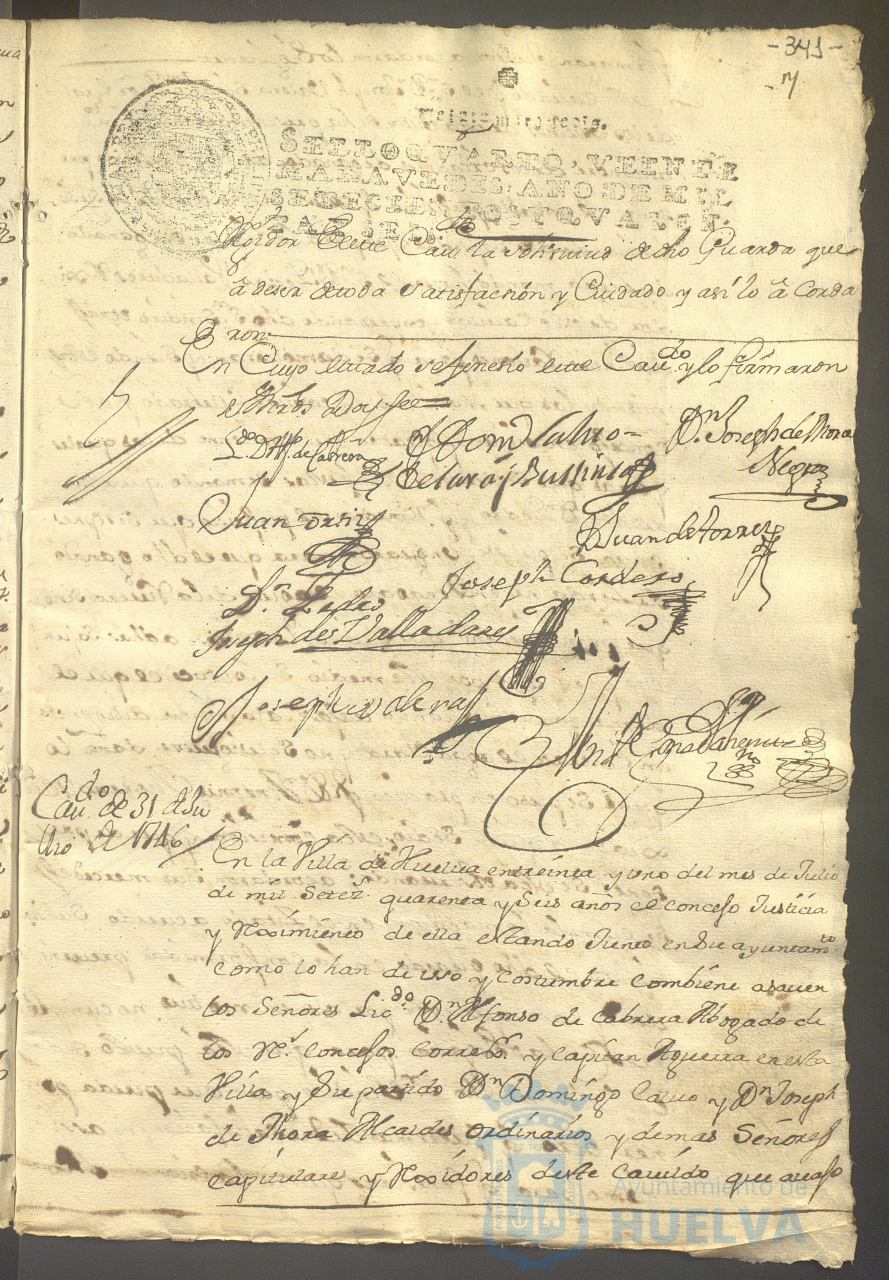 -341-
Veinte maravedis.
SELLO QVARTO, VEINTE
MARAVEDIS, AÑO DE MIL
SETECIENTOS Y QVAREN-
TA Y SEIS.
Rexidor deste Cavdo la solicitud de dho Guarda que
a deser de toda satisfacsion y Cuidado y asi lo a Corda
ron
En Cuyo estado se fenesio este Cavdo y lo firmaron
sus mrds Doy fee
Ldo. Dn Alfo de Cabrera
Dom Calvo
Dn Joseph de Mora
Negro
de Lara y Bustinza
Juan Ortiz
Juan de torres
Joseph Cordero
Dn Pedro
Joseph des Valladares
Joseph
Cavdo de 31 de Ju
llio de 1746
En la Villa de Huelva en treinta y uno del mes de Julio
de mil Setez quarenta y Seis años el concejo Justicia
y Reximiento de ella estando Junto en su ayuntamto
como lo han de uso y costumbre combiene a saver
los Señores Licdo Dn Alfonso de Cabrera Abogado de
los Rs Concejos Correxor y Capitan Aguerra en esta
Villa y su partido Dn Domingo Calvo y Dn Joseph
de Mora Alcaldes ordinarios y demas Señores
Capitulares y Rexidores deste Cavildo que avajo
Ayuntamiento de
HUELVA